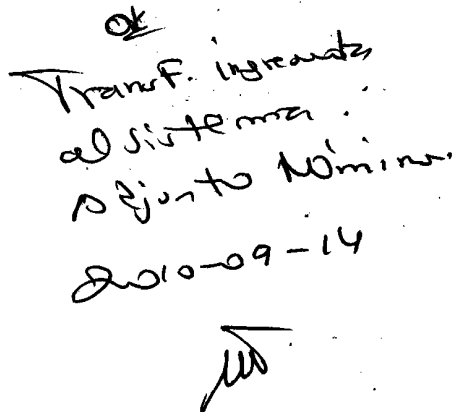 OK
Transf. ingresada
al sistema.
Adjunto Nómina.
2010-09-14